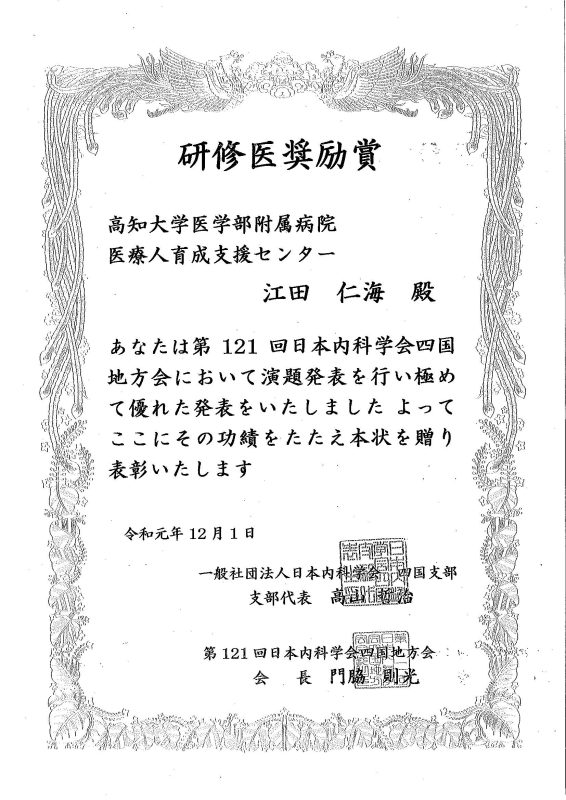 研修医奨励賞
高知大学医学部附属病院
医療人育成支援センター
江田　仁海　殿
あなたは第 121 回日本内科学会四国
地方会において演題発表を行い極め
て優れた発表をいたしました よって
ここにその功績をたたえ本状を贈り
表彰いたします
令和元年 12 月 1 日
一般社団法人日本内科学会　四国支部
支部代表　高山　哲治
第 121 回日本内科学会四国地方会
会　長　門脇　則光